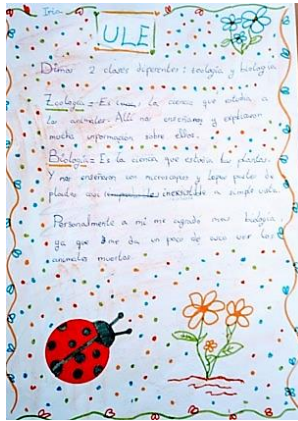 Iria
ULE
Dimos 2 clases diferentes: zoología y biología
Zoología = Es la ciencia que estudia a
los animales. Allí nos enseñaron y explicaron
mucha información sobre ellos.
Biología = Es la ciencia que estudia las plantas.
Y nos enseñaron con microscopios y lupas partes de
plantas que inexistible a simple vista.
Personalmente a mi me agrado mas biología,
ya que me da un poco de asco ver los
animales muertos.